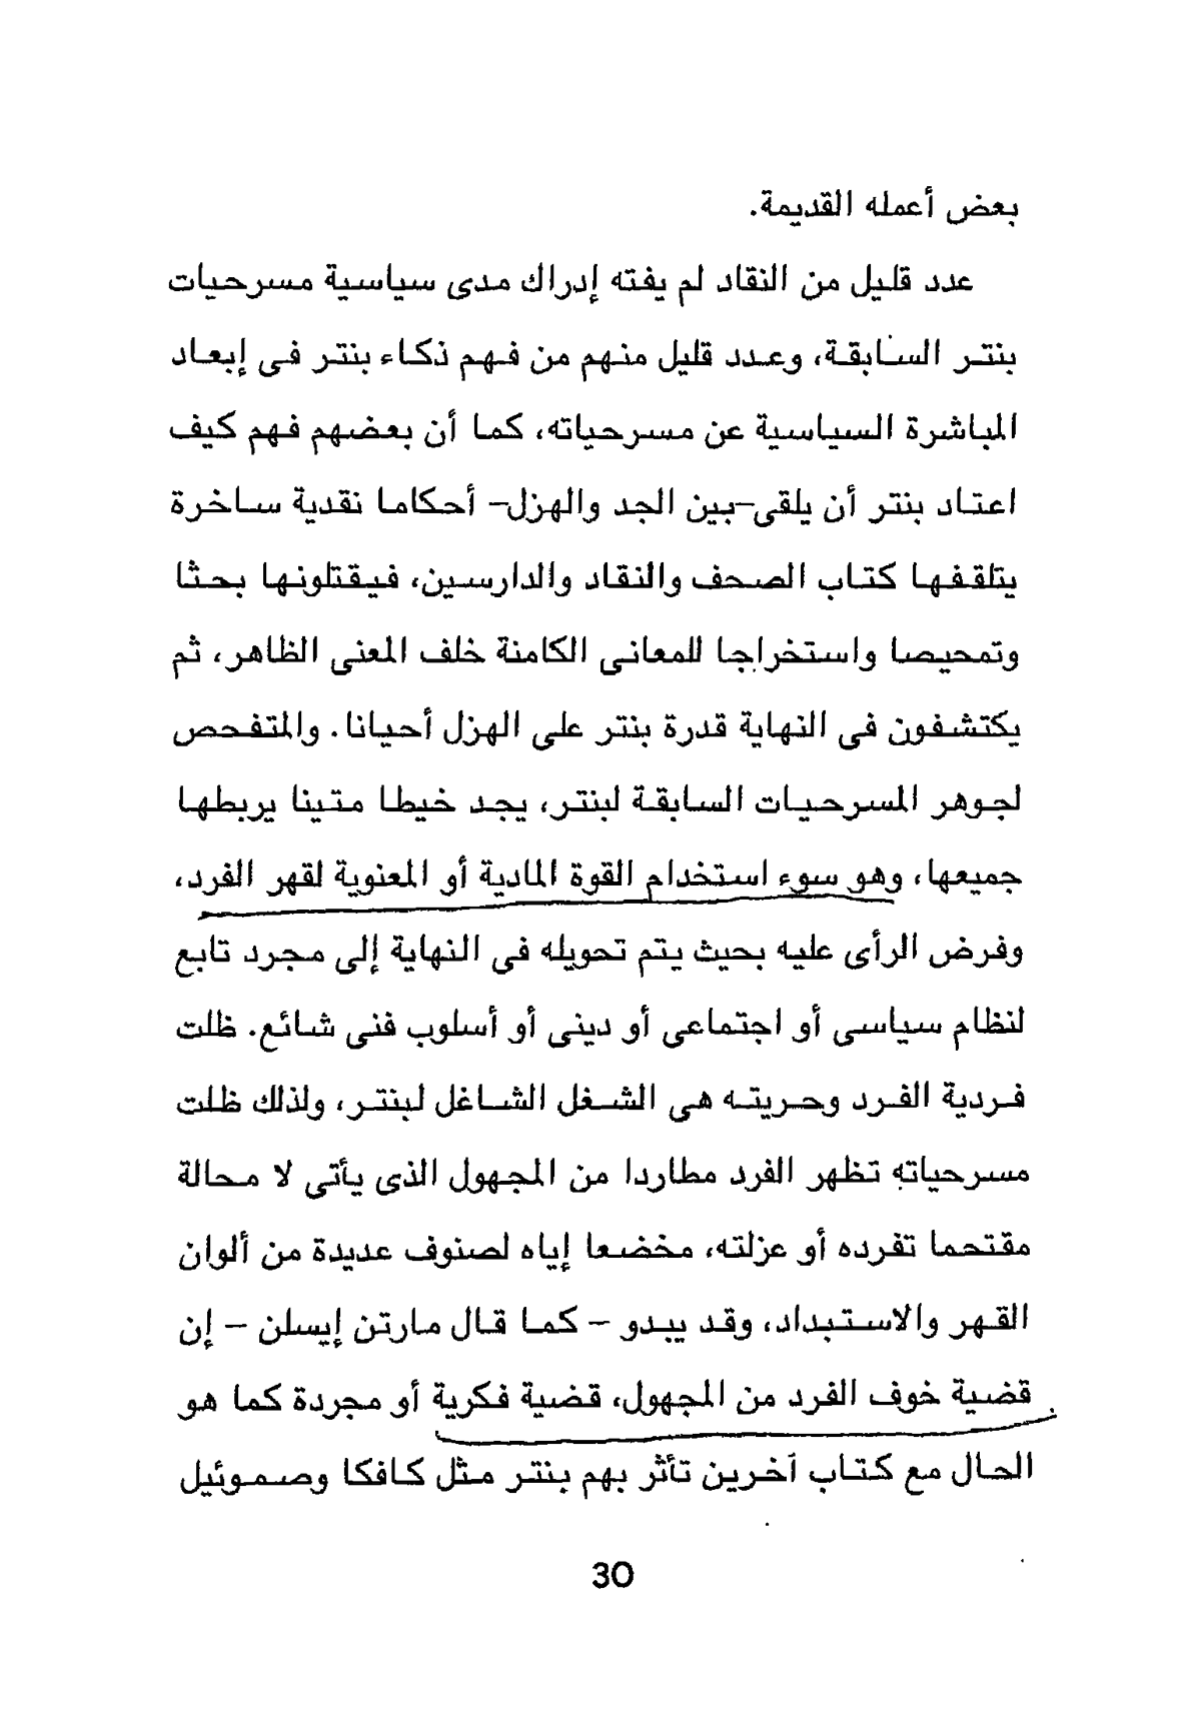 بعض أعمله القديمة.
عدد قليل من النقاد لم يفته إدراك مدى سياسية مسرحيات
بنتر السابقة، وعدد قليل منهم من فهم ذكاء بنتر فى إبعاد
المباشرة السياسية عن مسرحياته، كما أن بعضهم فهم كيف
اعتاد بنتر أن يلقى–بين الجد والهزل– أحكاما نقدية ساخرة
يتلقفها كتاب الصحف والنقاد والدارسين، فيقتلونها بحثا
وتمحيصا واستخراجا للمعانى الكامنة خلف المعنى الظاهر، ثم
يكتشفون فى النهاية قدرة بنتر على الهزل أحيانا. والمتفحص
لجوهر المسرحيات السابقة لبنتر، يجد خيطا متينا يربطها
جميعها، وهو سوء استخدام القوة المادية أو المعنوية لقهر الفرد،
وفرض الرأى عليه بحيث يتم تحويله فى النهاية إلى مجرد تابع
لنظام سياسى أو اجتماعى أو دينى أو أسلوب فنى شائع. ظلت
فردية الفرد وحريته هى الشغل الشاغل لبنتر، ولذلك ظلت
مسرحياته تظهر الفرد مطاردا من المجهول الذى يأتى لا محالة
مقتحما تفرده أو عزلته، مخضعا إياه لصنوف عديدة من ألوان
القهر والاستبداد، وقد يبدو – كما قال مارتن إيسلن – إن
قضية خوف الفرد من المجهول، قضية فكرية أو مجردة كما هو
الحال مع كتاب آخرين تأثر بهم بنتر مثل كافكا وصموئيل
30